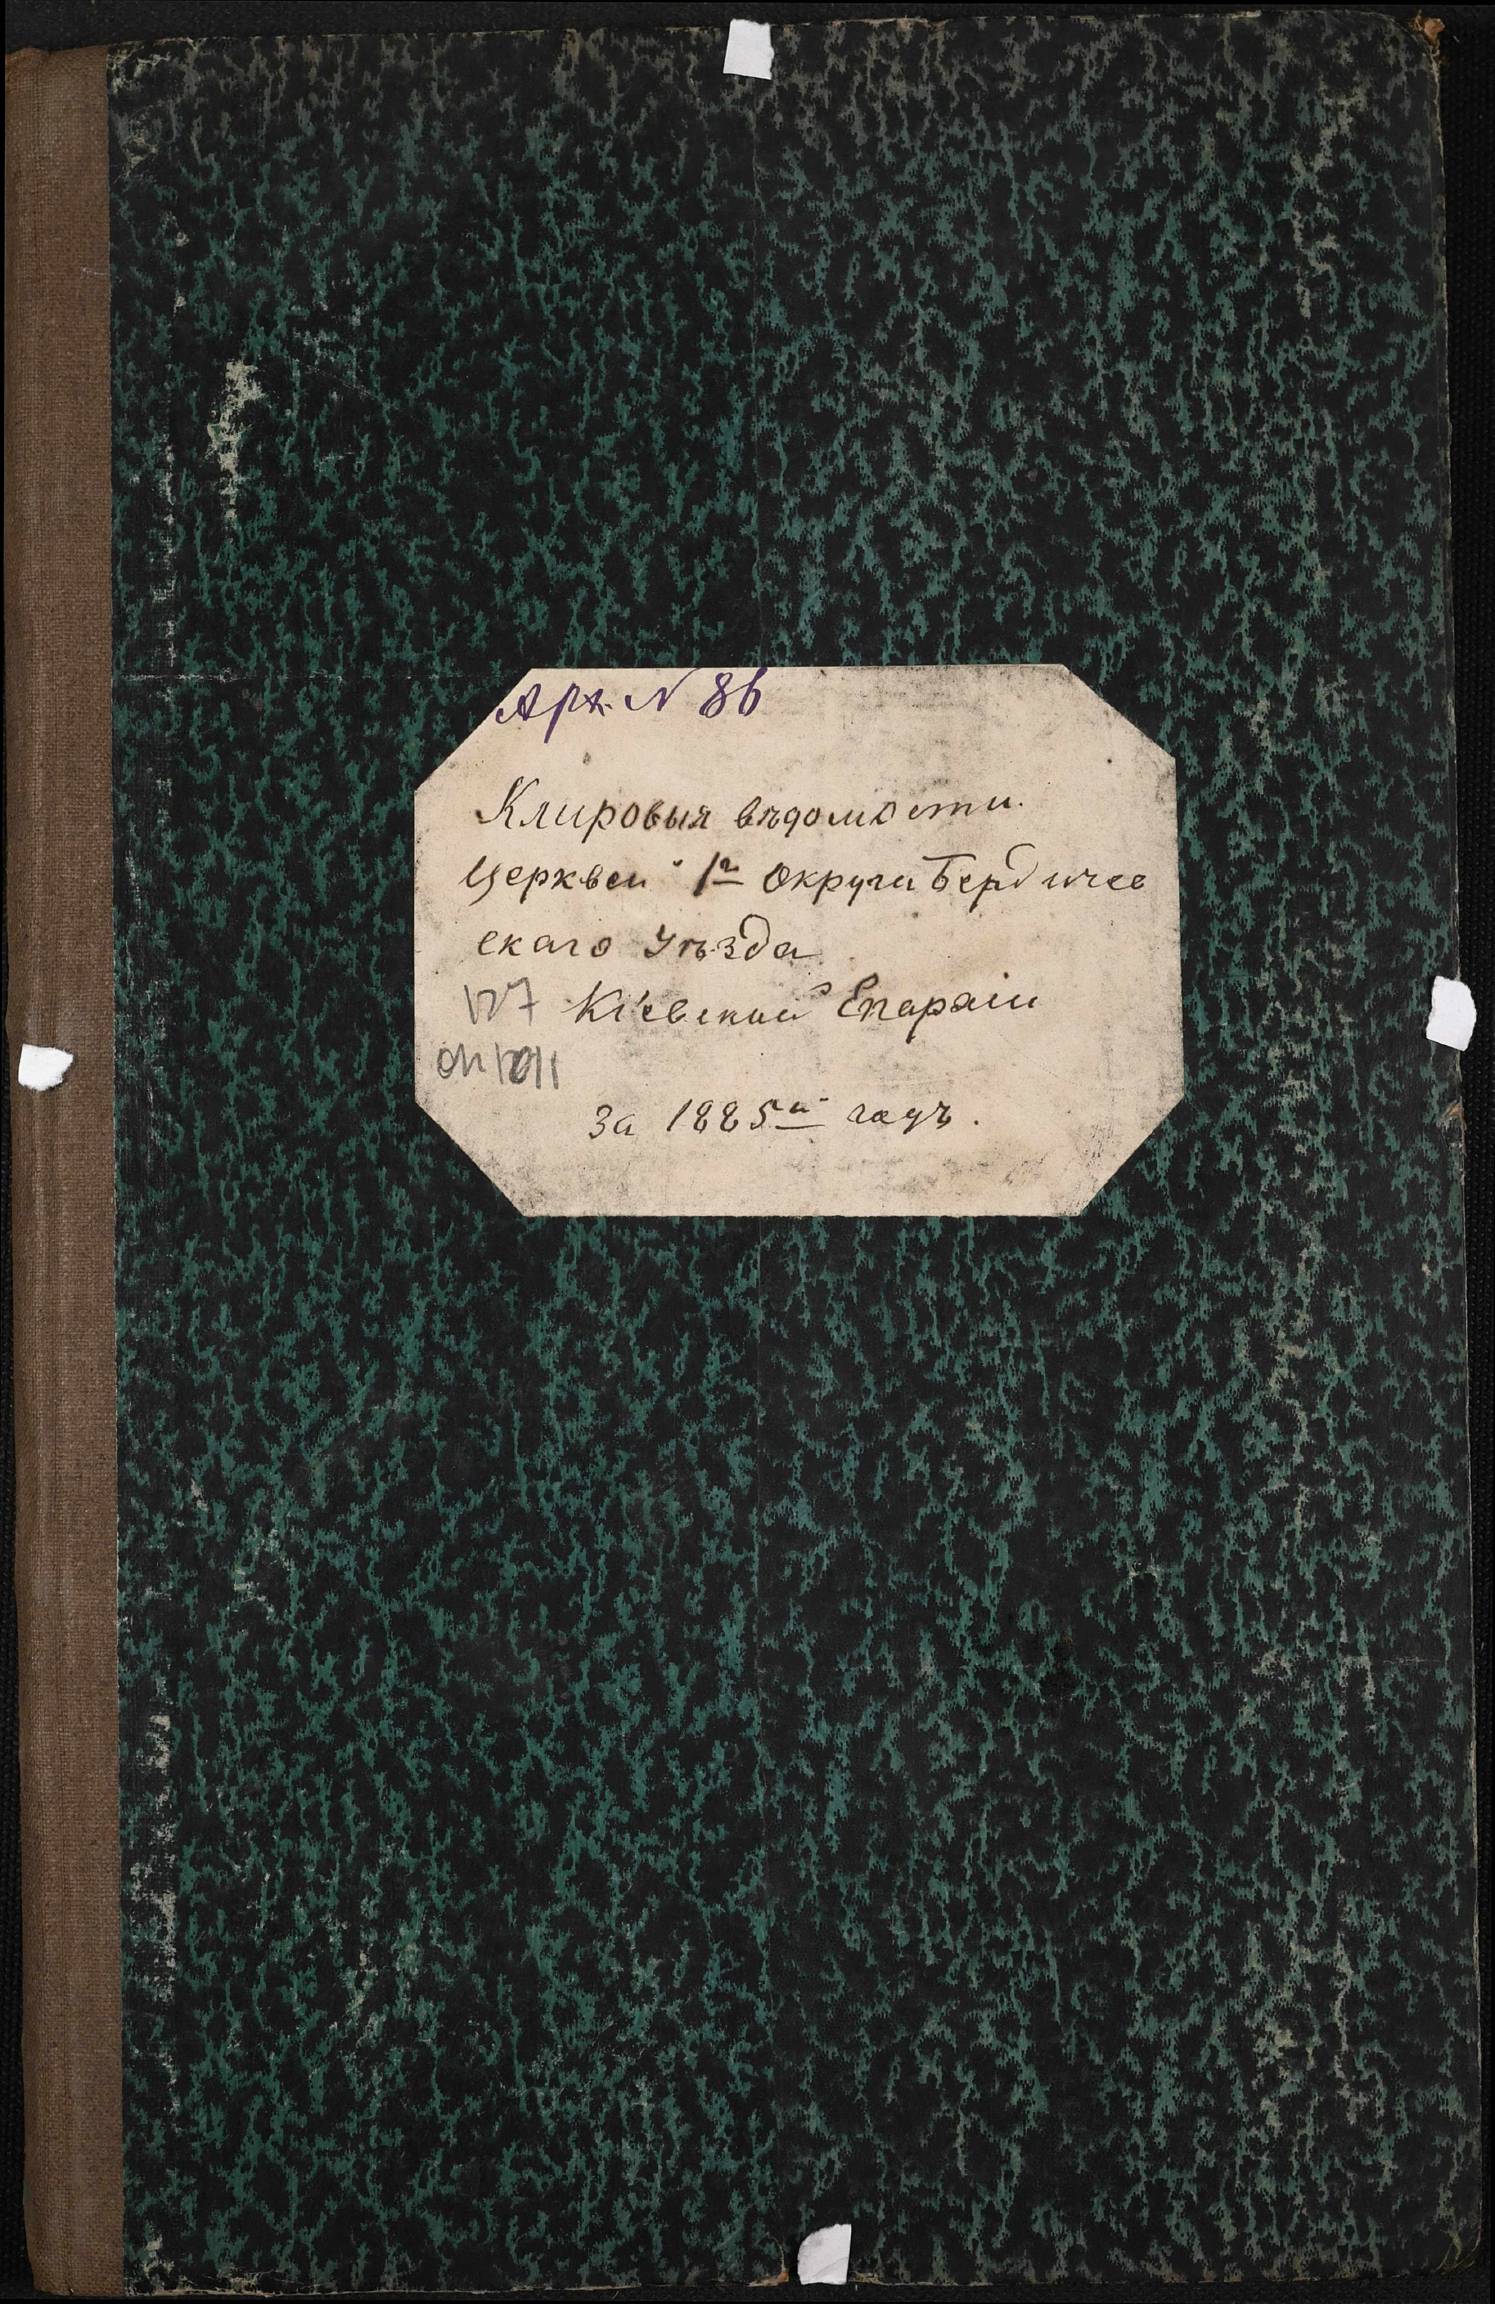 Арх. N 86
Клировыя вѣдомости.
Церквей 1го Округа Бердичев
скаго Уѣзда
127 Кіевской Епархіи
оп 1011
за 1885й годъ.